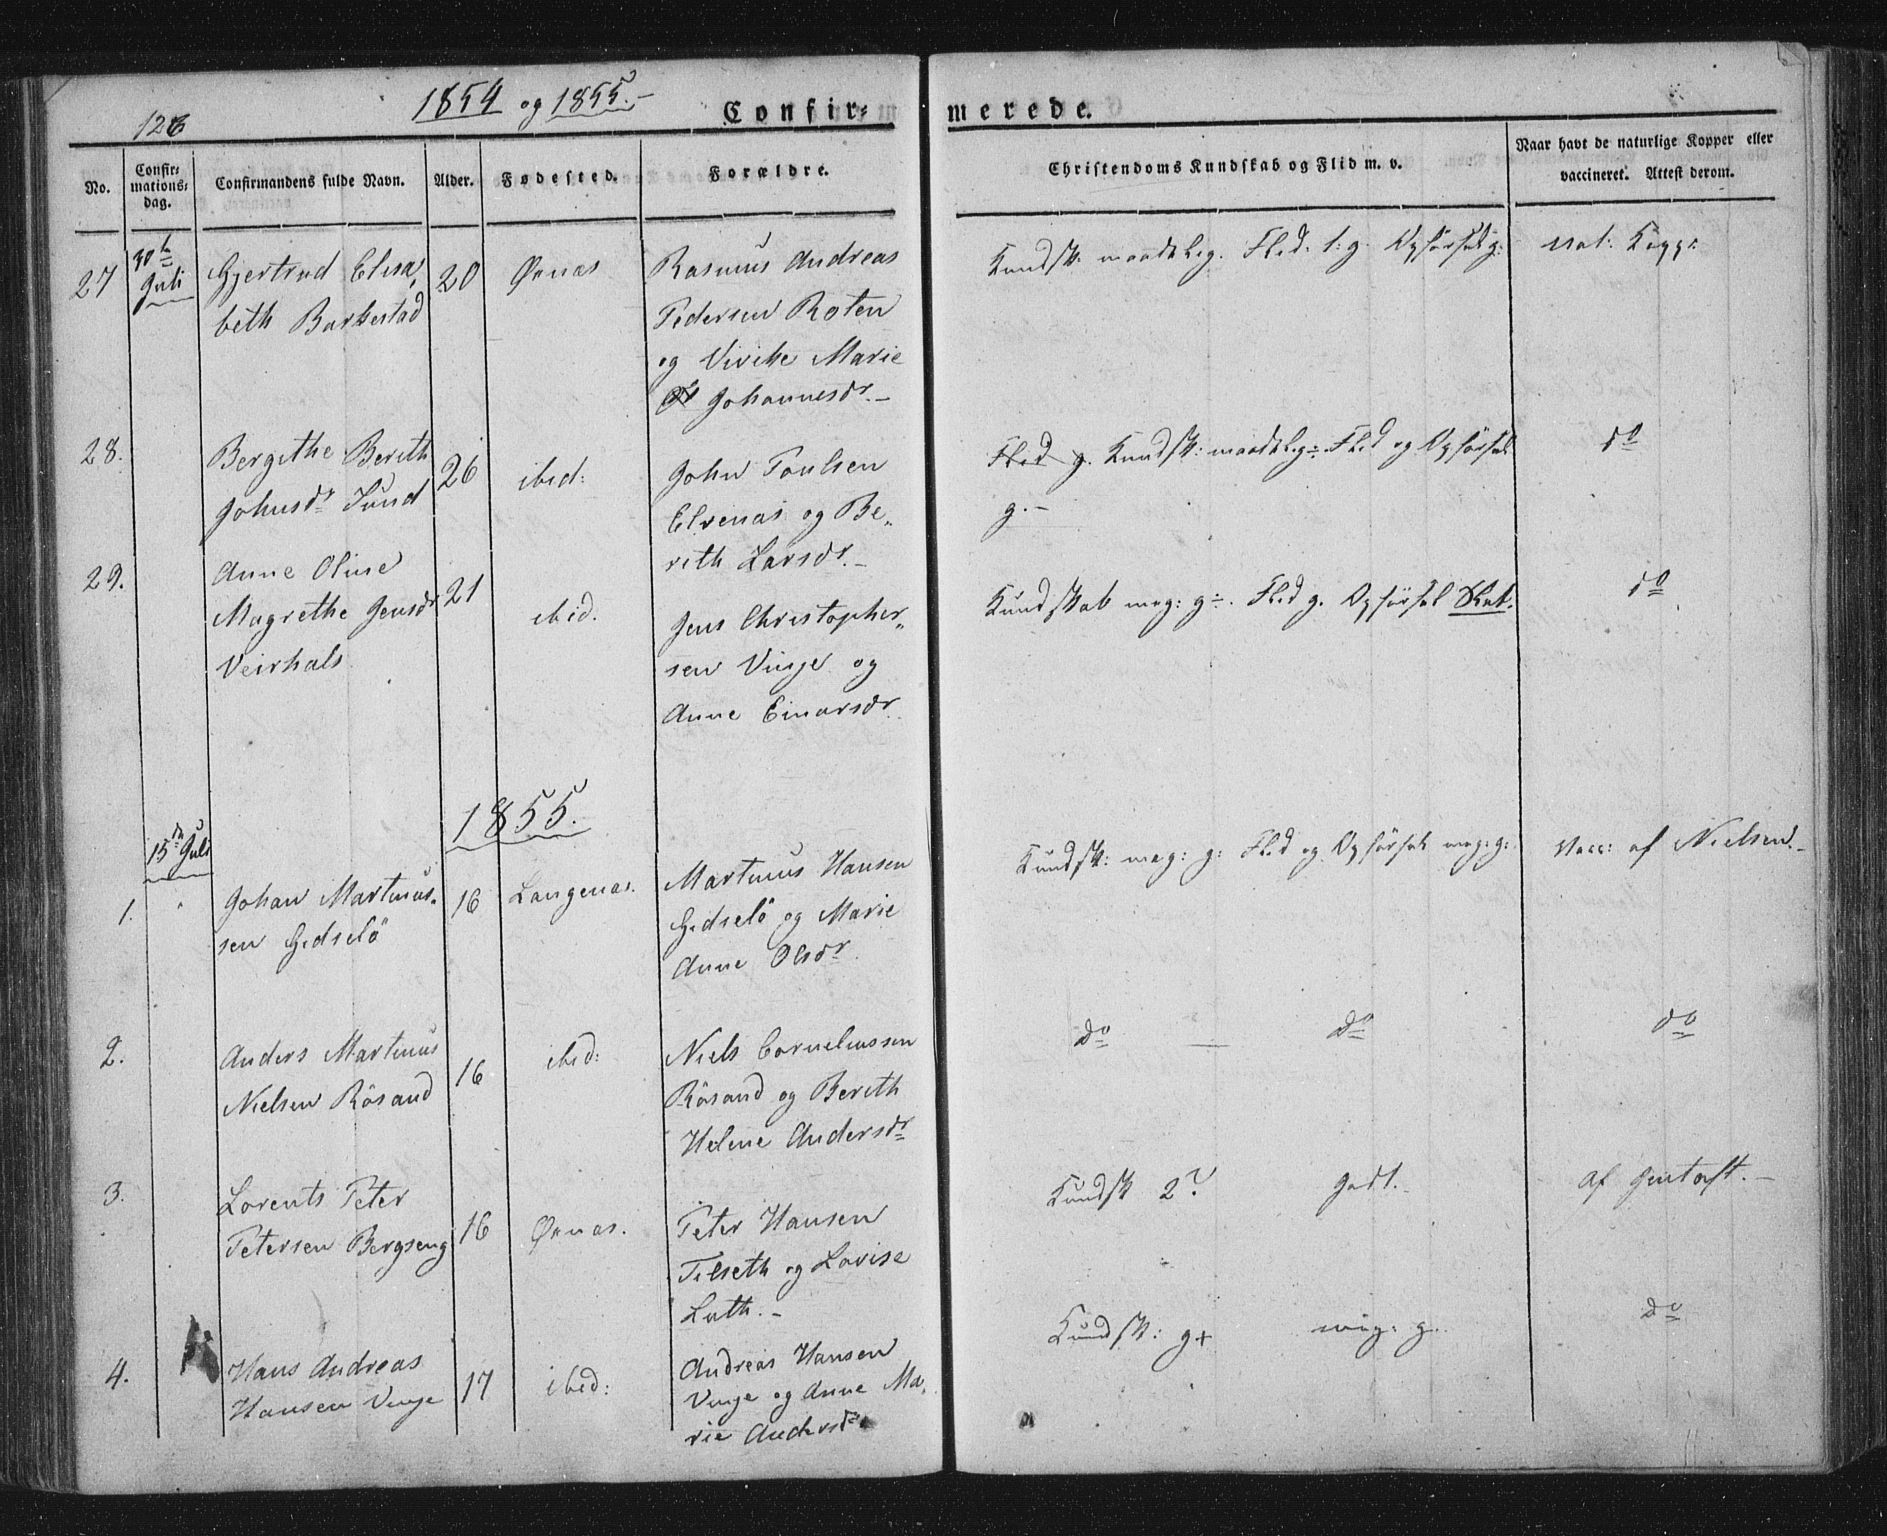 126
1854 og 1855.-
Confir-
merede.
No.
Confir-
mations-
dag.
Confirmandens fulde Navn.
Alder.
Fødested.
Forældre.
Christendoms Kundskab og Flid m. v.
Naar havt de naturlige Kopper eller
vaccineret. Attest derom.
27
30te
Juli
Gjertrud Elisa,
beth Barkestad
20
Ørnæs
Rasmus Andreas
Pedersen Roten
og Viviche Marie
Johannesdr.-
Kundsk: maadelig. Flid. t: g. Opførsel g:
Nat: Kopp:
28.
Bergithe Berith
Johnsdr Sund
26
ibid:
John Poulsen
Elvenas og Be„
rith Larsdr.-
Flid g. Kundsk: maadelig: Flid og Opførsel
g.-
do
29.
Anne Oline
Magrethe Jensdr
Veirhals
21
ibid.
Jens Christopher„
sen Vinje og
Anne Einarsdr
Kundskab meg: g÷. Flid g. Opførsel Slet.
do
1855.
15de Juli
1.
Johan Martinus.
sen Gidselö
16
Langenæs.
Martinus Hansen
Gidselö og Marie
Anne Olsdr.
Kundsk: meg: g: Flid og Opførsel meg: g:
Vacc: af Nielsen.-
2.
Anders Martinus
Nielsen Rösand
16
ibid:
Niels Corneliussen
Rösand og Berith
Helene Andersdr
do — do
do
3.
Lorents Peter
Petersen Bergseng
16
Ørnæs.
Peter Hansen
Tilseth og Lovise
Luth.-
Kundsk 2? godt.-
af Gentoft.-
4.
Hans Andreas
Hansen Vinje
17
ibid:
Andreas Hansen
Vinje og Anne Ma„
rie Andersdr
Kundsk: g+ meg: g.
do